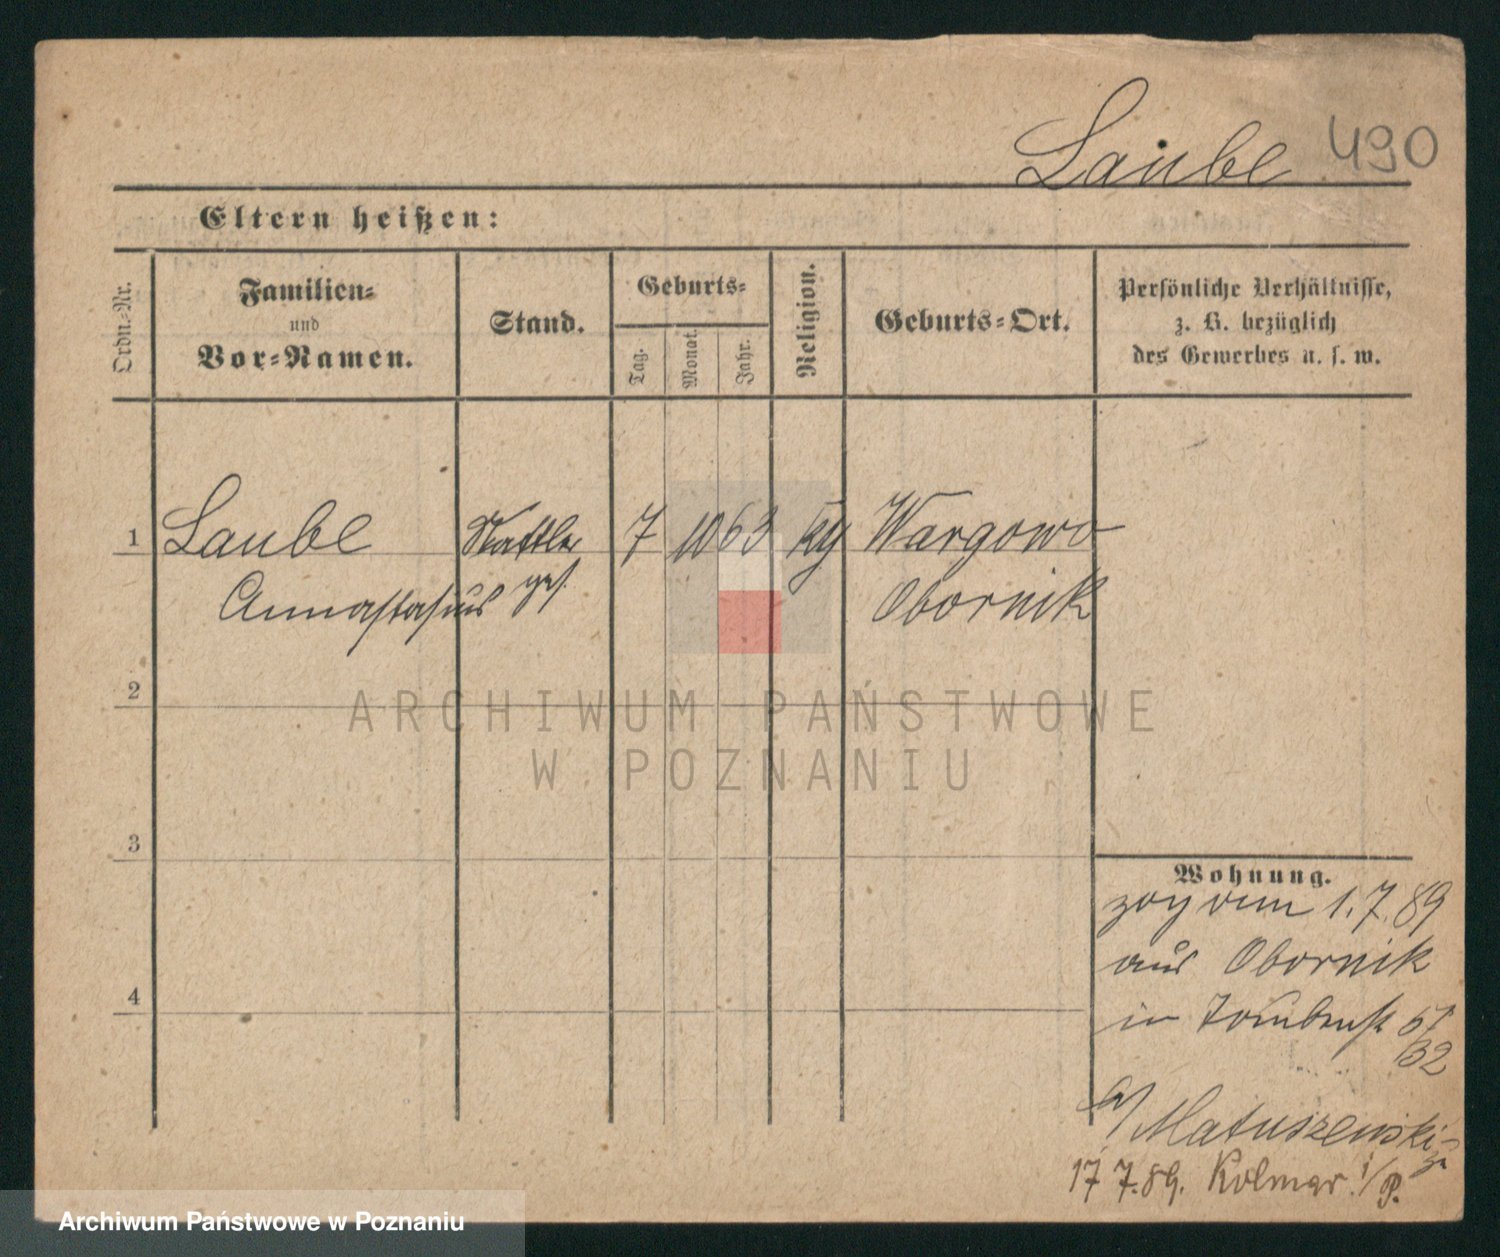 Laube 490
Eltern heißen:
Ordn.-Nr.
Familien-
und
Vor-Namen.
Stand.
Geburts-
Tag.
Monat.
Jahr.
Religion.
Geburts-Ort.
Persönliche Verhältnisse,
z. B. bezüglich
des Gewerbes u. s. w.
1 Laube Sattler 7 10 63 Wargowo
Annastasius ges. Obornik
2
ARCHIWUM PAŃSTWOWE
W POZNANIU
3
Wohnung.
zog vom 1.7.89
aus Obornik
4
in 
32
Matuszewski
17 7.89. Kolmar i/P.
Archiwum Państwowe w Poznaniu